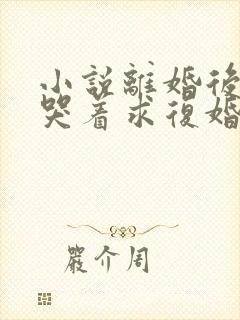 小説離婚後
哭着求復婚
嚴介周